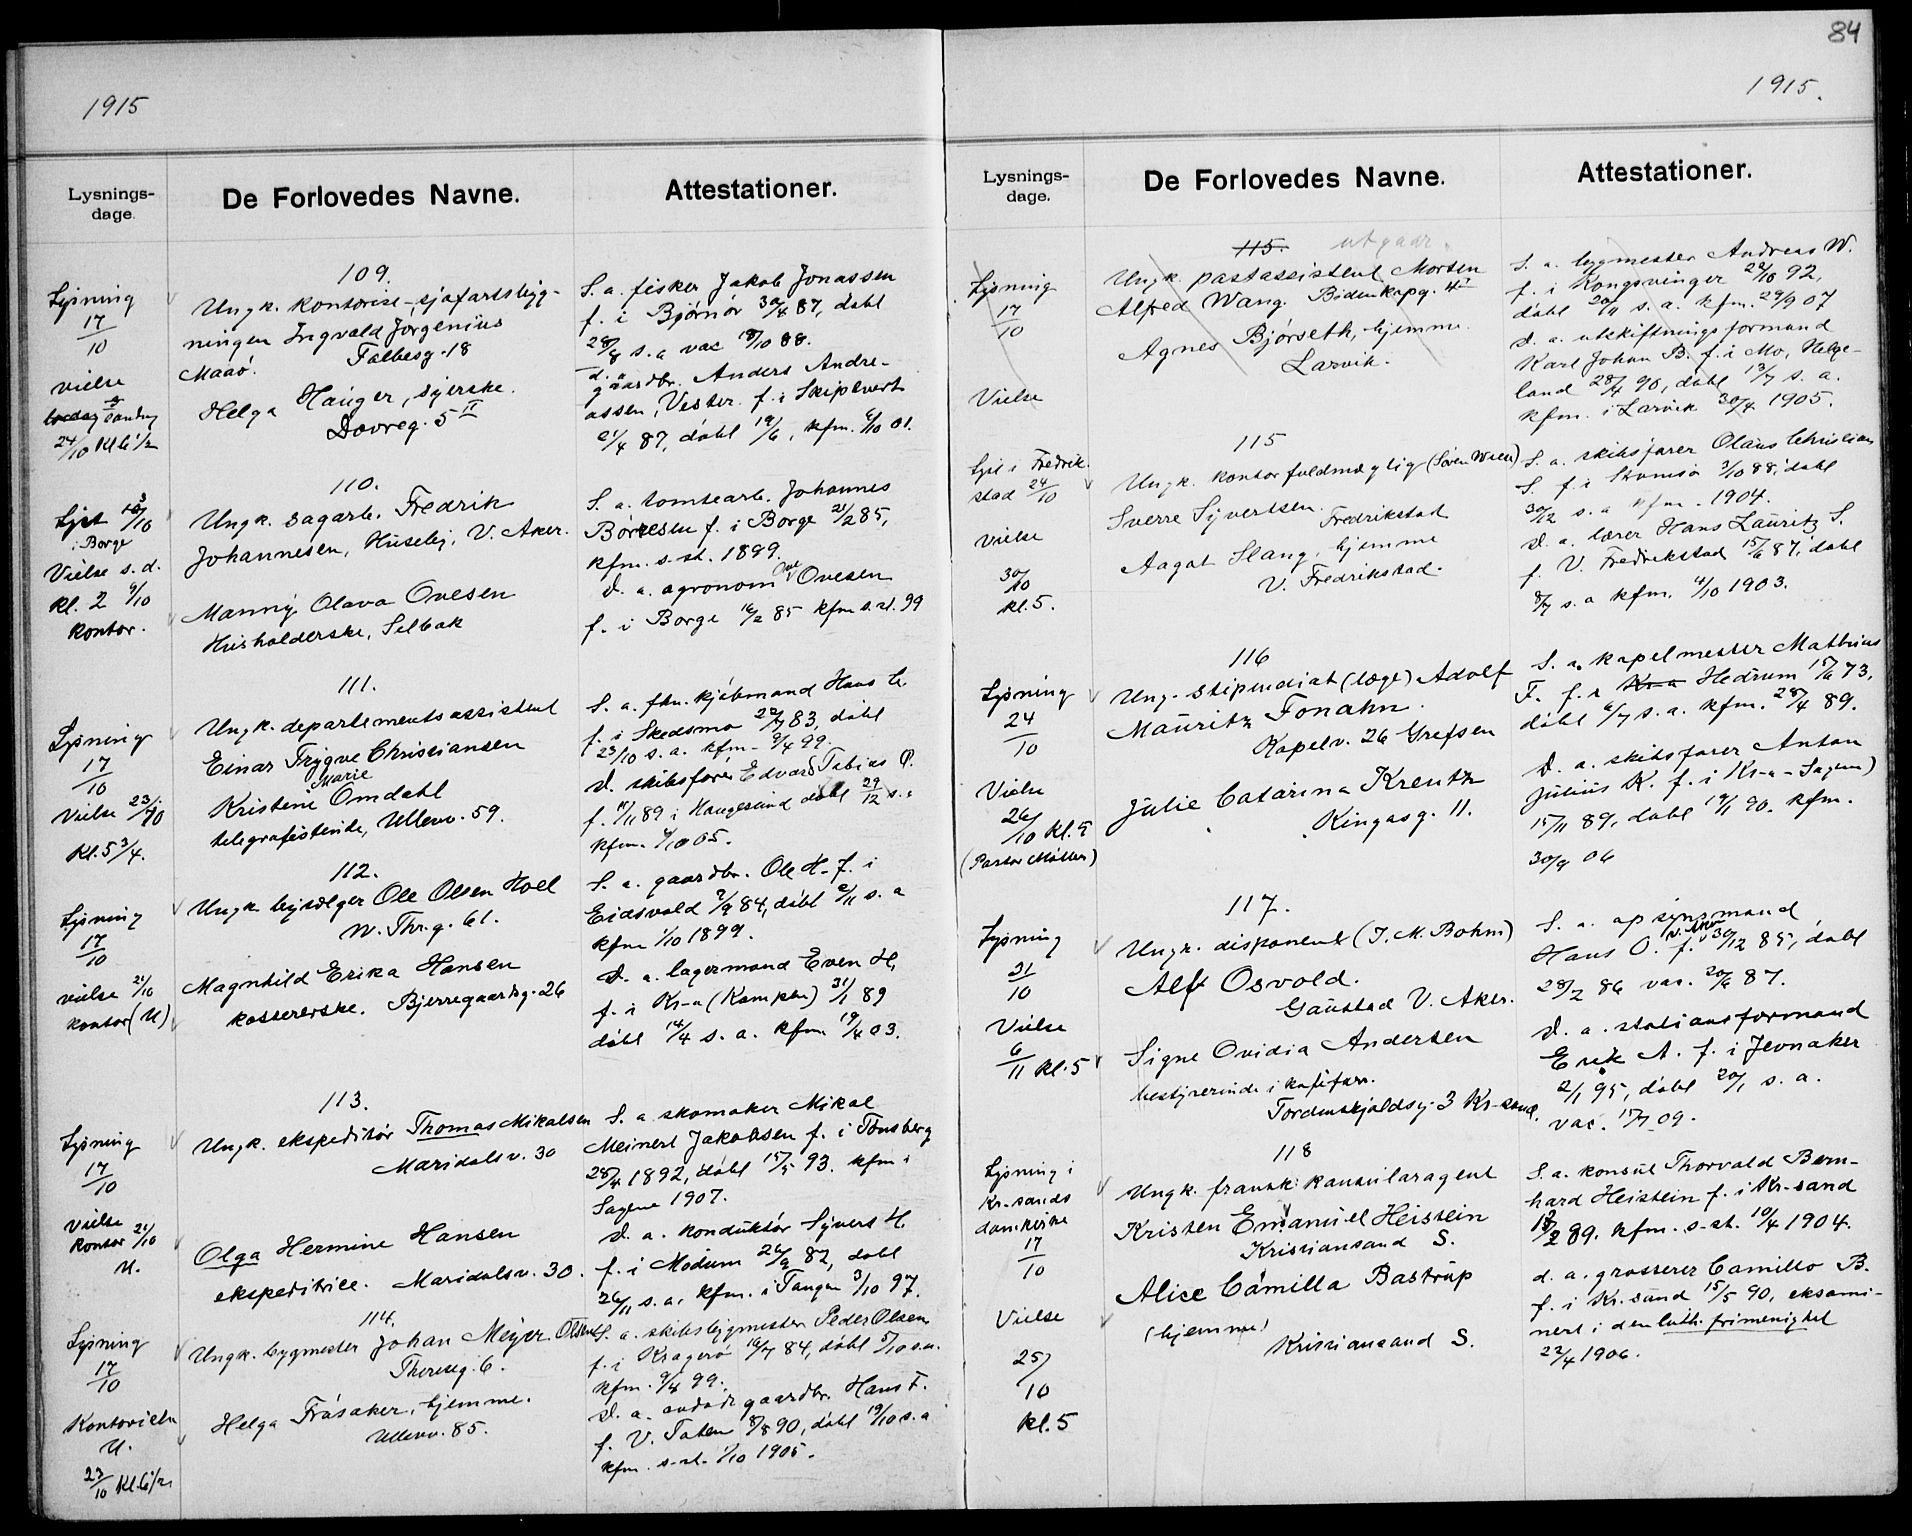 84
1915
Lysnings-
dage.
De Forlovedes Navne.
Attestationer.
109.
Lysning
17/10
vielse
søndag
24/10 Kl 6 1/2
Ungk. kontorist-sjøfartsbyg-
ningen Ingvald Jørgenius
Maaø. Falbesg. 18
Helga Hauger, syerske.
Dovreg. 5 II
S. a. fisker Jakob Jonassen
f. i Bjørnør 30/4 87, døbt
28/8 s. a vac 8/10 88.
d. a.
gaardbr. Anders Andre-
assen, Vester f. i Skiptvert
21/4 87, døbt 19/6, kfm. 6/10 01.
110.
Lyst 3/10
i Borge
Vielse s. d.
kl. 2 9/10
kontor.
Ungk. sagarb. Fredrik
Johannesen, Huseby, V. Aker.
Manny Olava Ovesen
Husholderske, Selbak
S. a. tomtearb. Johannes
f. i Borge 21/2 85,
kfm. s. st. 1899.
D. a. agronom Ove Ovesen
f. i Borge 16/2 85 kfm s. st. 99
111.
Lysning
17/10
Vielse 23/10
Kl. 5 3/4.
Ungk. departementsassistent
Einar Trygve Christiansen
Marie
Kristine Omdahl
telegrafistinde, Ullevv. 59.
S. a. fhn. kjøbmand Hans C.
f. i Skedsmo 22/7 83, døbt
23/10 s. a. kfm. 9/4 99.
D. skibsfører Edvard Tobias O.
f. 11/11 89 i Haugesund døbt 29/12 s. a
kfm. 1/10 05.
112.
Lysning
17/10
vielse 21/10
kontor (U)
Ungk. bysælger Ole Olsen Hoel
W. Thr. g. 61.
Magnhild Erika Hansen
kassererske. Bjerregaardsg. 26
S. a. gaardbr. Ole H. f. i
Eidsvold 7/9 84, døbt 2/11 s. a
kfm 1/10 1899.
D. a. lagermand Even H.
f. i Kr-a (Kampen) 31/1 89
døbt 14/4 s. a. kfm. 19/4 03.
113.
Lysning
17/10
Vielse
kontor 21/10
U.
Ungk. ekspeditør Thomas Mikalsen
Maridalsv. 30
Olga Hermine Hansen
ekspeditrice. Maridalsv. 30.
S. a. skomaker Mikal
Meinert Jakobsen f. i Tønsberg
28/4 1892, døbt 15/5 93. kfm i
Sagene 1907.
D. a. konduktør Syvert H.
f. i Modum 26/9 82, døbt
26/11 s. a. kfm. i Tangen 3/10 97.
114.
Lysning
17/10
Kontorvielse
U.
23/10 Kl. 6 1/2
Ungk. bygmester Johan Meyer Olsen
Thereseg. 6.
Helga Fråsaker, hjemme.
Ullevv. 85.
S. a. skibsbygmester Peder Olsen
f. i Kragerø 16/7 84, døbt 5/10 s. a.
kfm. 9/4 99.
D. a. gaardbr. Hans F.
f. V. Toten 8/8 90, døbt 19/10 s. a
kfm. s. st. 1/10 1905.
1915.
Lysnings-
dage.
De Forlovedes Navne.
Attestationer.
115. utgaar.
Lysning
17/10
Vielse
Ungk. postassistent Morten
Alfred Wang. Bidenkapsg. 4 I
Agnes Bjørseth, hjemme.
Larvik.
S. a. bygmester Andreas W.
f. i Kongsvinger 22/10 92,
døbt 20/11 s. a. kfm. 29/9 07
D. a. utskiftningsformand
Karl Johan B. f. i Mo, Helge-
land 28/4 90, døbt 13/7 s. a.
kfm. i Larvik 30/4 1905.
115
Lyst i Fredrik-
stad 24/10
Vielse
30/10
kl. 5.
Ungk. kontorfuldmægtig (Søren Wiese)
Sverre Syvertsen. Fredrikstad
Aagot Slang, hjemme
V. Fredrikstad.
S. a. skibsfører Olaus Christian
S. f. i Strømsø 3/10 88, døbt
30/12 s. a kfm. 1904.
D. a. lærer Hans Lauritz S.
f. V. Fredrikstad 15/6 87, døbt
8/7 s. a kfm. 4/10 1903.
116
Lysning
24/10
Vielse
26/10 kl. 5
(Pastor Møller)
Ung. stipendiat (læge) Adolf
Mauritz Fonahn.
Kapelv. 26 Grefsen
Julie Catarina Kreutz
Kingosg. 11.
S. a. kapelmester Mathias
F. f. i Kr-a Hedrum 15/6 73,
døbt 6/7 s. a. kfm. 28/4 89.
D. a. skibsfører Anton
Julius K. f. i Kr-a-Sagene)
15/11 89, døbt 19/1 90. kfm.
30/9 06
117.
Lysning
31/10
Vielse
6/11 kl. 5
Ungk. disponent (J. M. Bohm)
Alf Osvold.
Gaustad V. Aker.
Signe Ovidia Andersen
bestyrerinde i kaffeforr.
Tordenskjoldsg. 3 Kr-sand.
S. a. opsynsmand
Hans O. f. V. Aker 30/12 85, døbt
28/2 86 vac. 20/6 87.
D. a. stationsformand
Erik A. f. i Jevnaker
2/1 95, døbt 20/1 s. a.
vac. 15/7 09.
118
Lysning i
Kr-sands
domkirke
17/10
Vielse
25/10
kl. 5
Ungk. fransk konsularagent
Kristen Emanuel Heistein
Kristiansand S.
Alice Camilla Bastrup
(hjemme)
Kristiansand S.
S. a. konsul Thorvald Bern-
hard Heistein f. i Kr-sand
13/2 89. kfm. s. st. 10/4 1904.
d. a. grosserer Camillo B.
f. i Kr. sund 15/5 90, eksami-
nert i den luth. frimenighet
22/4 1906.